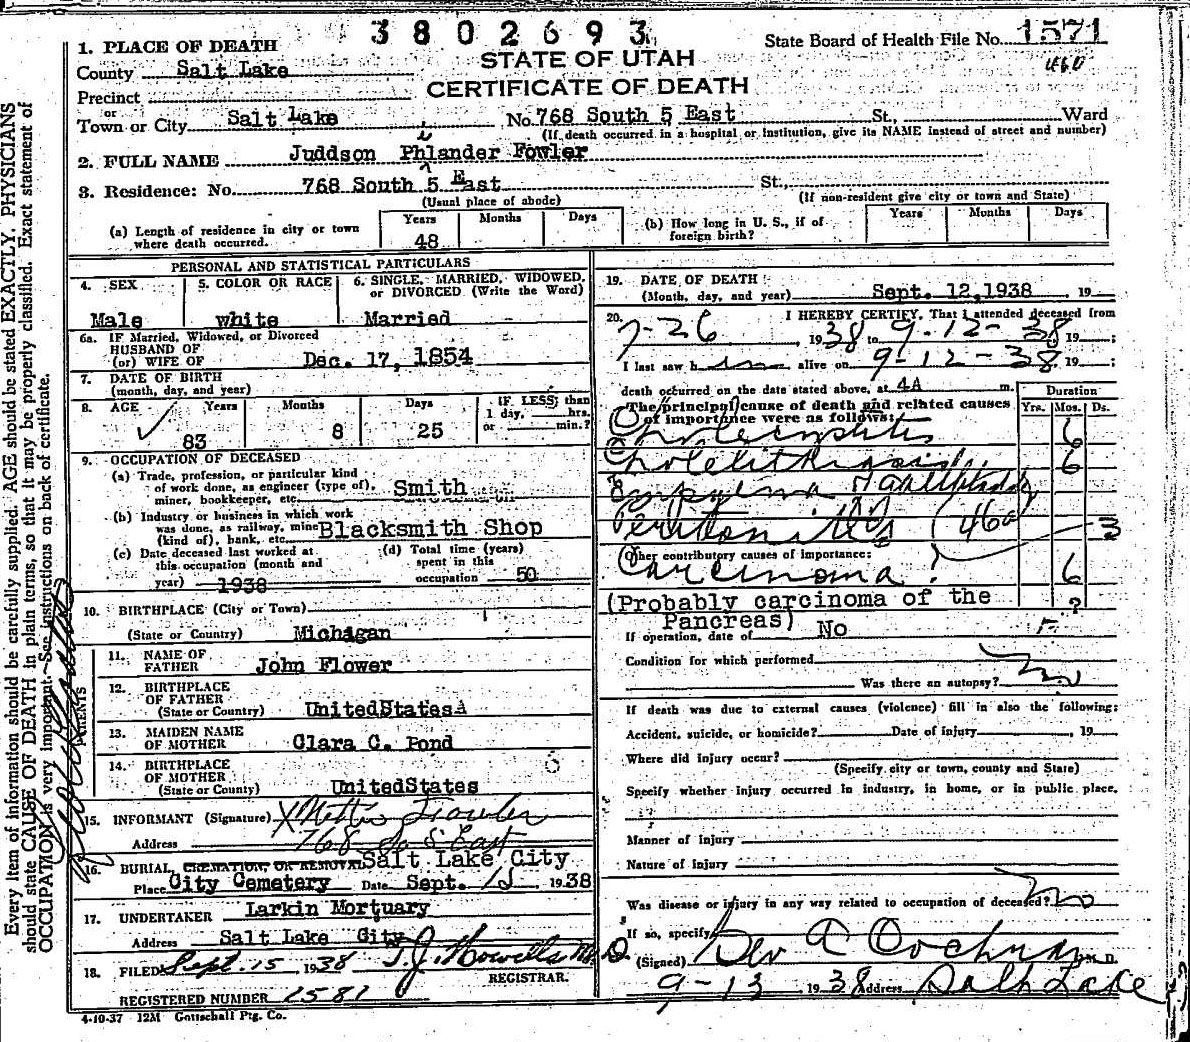 3802693
State Board of Health File No. 1571
460
1. PLACE OF DEATH
STATE OF UTAH
County Salt Lake
CERTIFICATE OF DEATH
Precinct
or
Town or City Salt Lake No. 768 South 5 East St., Ward
(If death occurred in a hospital or institution, give its NAME instead of street and number)
i
2. FULL NAME Juddson Phlander Fowler
3. Residence: No. 768 South 5 East St.,
(Usual place of abode) (If non-resident give city or town and State)
Years Months Days
(a) Length of residence in city or town where death occurred. 48
(b) How long in U. S., if of foreign birth? Years Months Days
PERSONAL AND STATISTICAL PARTICULARS
4. SEX 5. COLOR OR RACE 6. SINGLE, MARRIED, WIDOWED, or DIVORCED (Write the Word)
Male white Married
6a. IF Married, Widowed, or Divorced
HUSBAND OF
(or) WIFE OF Dec. 17, 1854
7. DATE OF BIRTH
(month, day, and year)
8. AGE Years Months Days IF LESS than
1 day, hrs.
or min.?
83 8 25
9. OCCUPATION OF DECEASED
(a) Trade, profession, or particular kind
of work done, as engineer (type of), Smith
miner, bookkeeper, etc.
(b) Industry or business in which work
was done, as railway, mine Blacksmith Shop
(kind of), bank, etc.
(c) Date deceased last worked at (d) Total time (years)
this occupation (month and spent in this
year) 1938 occupation 50
10. BIRTHPLACE (City or Town)
(State or Country) Michigan
PARENTS
11. NAME OF
FATHER John Flower
12. BIRTHPLACE
OF FATHER
(State or Country) UnitedStatesA
13. MAIDEN NAME
OF MOTHER Clara C. Pond
14. BIRTHPLACE
OF MOTHER
(State or Country) UnitedStates
15. INFORMANT (Signature) X Mettie Fowler
Address 768 So 5 East
16. BURIAL, CREMATION, OR REMOVAL Salt Lake City
Place City Cemetery Date Sept. 15, 1938
17. UNDERTAKER Larkin Mortuary
Address Salt Lake City
18. FILED Sept. 15, 1938 T. J. Howells M. D.
REGISTRAR.
REGISTERED NUMBER 1581
4-10-37 12M Gottschall Ptg. Co.
19. DATE OF DEATH
(Month, day, and year) Sept. 12, 1938 19
20. I HEREBY CERTIFY, That I attended deceased from
7-26, 1938 to 9-12-38 19 ;
I last saw him alive on 9-12-38 19 ;
death occurred on the date stated above, at 4A m.
The principal cause of death and related causes
of importance were as follows:
Duration
Yrs. Mos. Ds.
Cholecystitis 6
Cholelithiasis 6
Empyema of Gallbladder
Peritonitis (46a) 3
Other contributory causes of importance:
Carcinoma? 6
(Probably carcinoma of the ?
Pancreas)
If operation, date of No
Condition for which performed
Was there an autopsy? No
If death was due to external causes (violence) fill in also the following:
Accident, suicide, or homicide? Date of injury , 19
Where did injury occur?
(Specify city or town, county and State)
Specify whether injury occurred in industry, in home, or in public place.
Manner of injury
Nature of injury
Was disease or injury in any way related to occupation of deceased? No
If so, specify
(Signed) Geo A Cochran M. D.
9-13 1938 Address Salt Lake
Every item of information should be carefully supplied. AGE should be stated EXACTLY. PHYSICIANS
should state CAUSE OF DEATH in plain terms, so that it may be properly classified. Exact statement of
OCCUPATION is very important. See instructions on back of certificate.